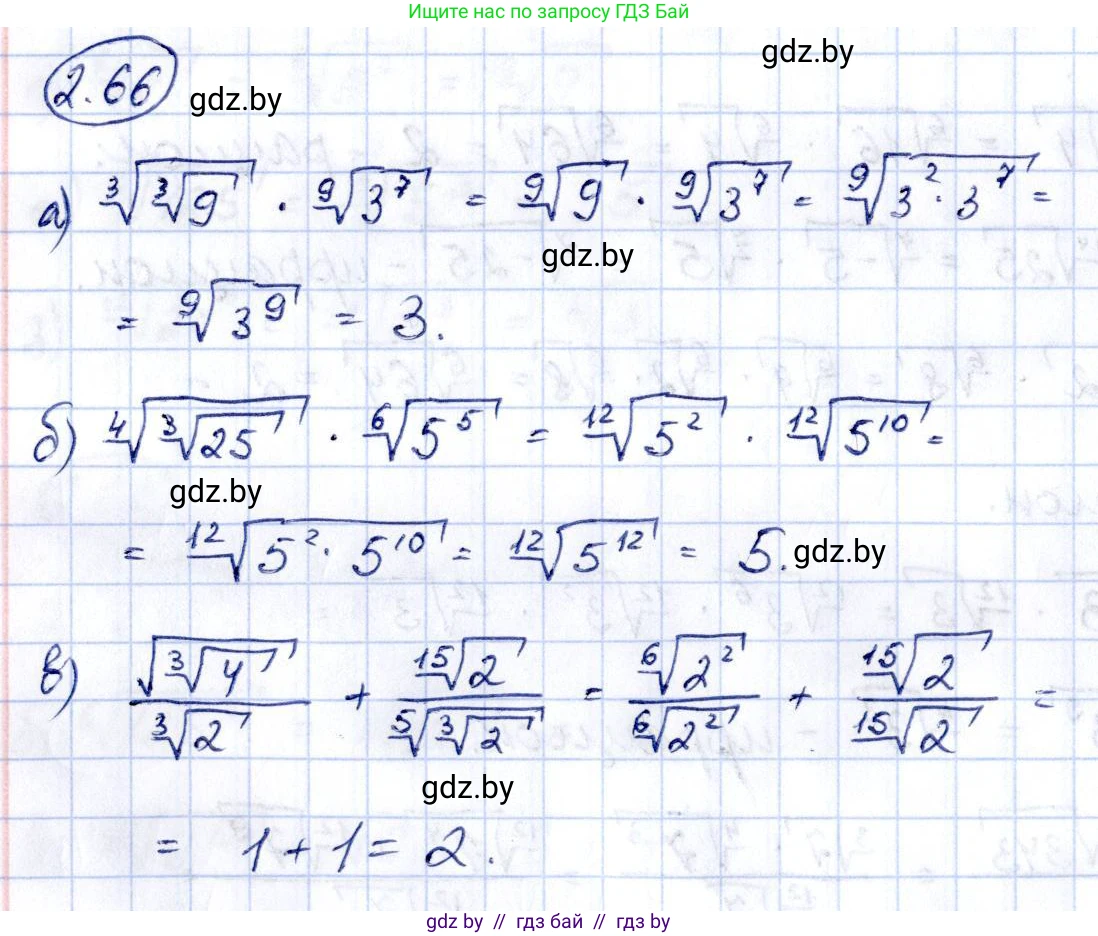 Ищите нас по запросу ГДЗ Бай
gdz.by
2.66 gdz.by
а) ∛(∛9) · ⁹√(3⁷) = ⁹√9 · ⁹√(3⁷) = ⁹√(3² · 3⁷) =
gdz.by
= ⁹√(3⁹) = 3.
б) ⁴√(∛25) · ⁶√(5⁵) = ¹²√(5²) · ¹²√(5¹⁰) =
gdz.by
= ¹²√(5² · 5¹⁰) = ¹²√(5¹²) = 5. gdz.by
в) √(∛4) / ∛2 + ¹⁵√2 / ⁵√(∛2) = ⁶√(2²) / ⁶√(2²) + ¹⁵√2 / ¹⁵√2 =
gdz.by
= 1 + 1 = 2.
gdz by // гдз бай // гдз by